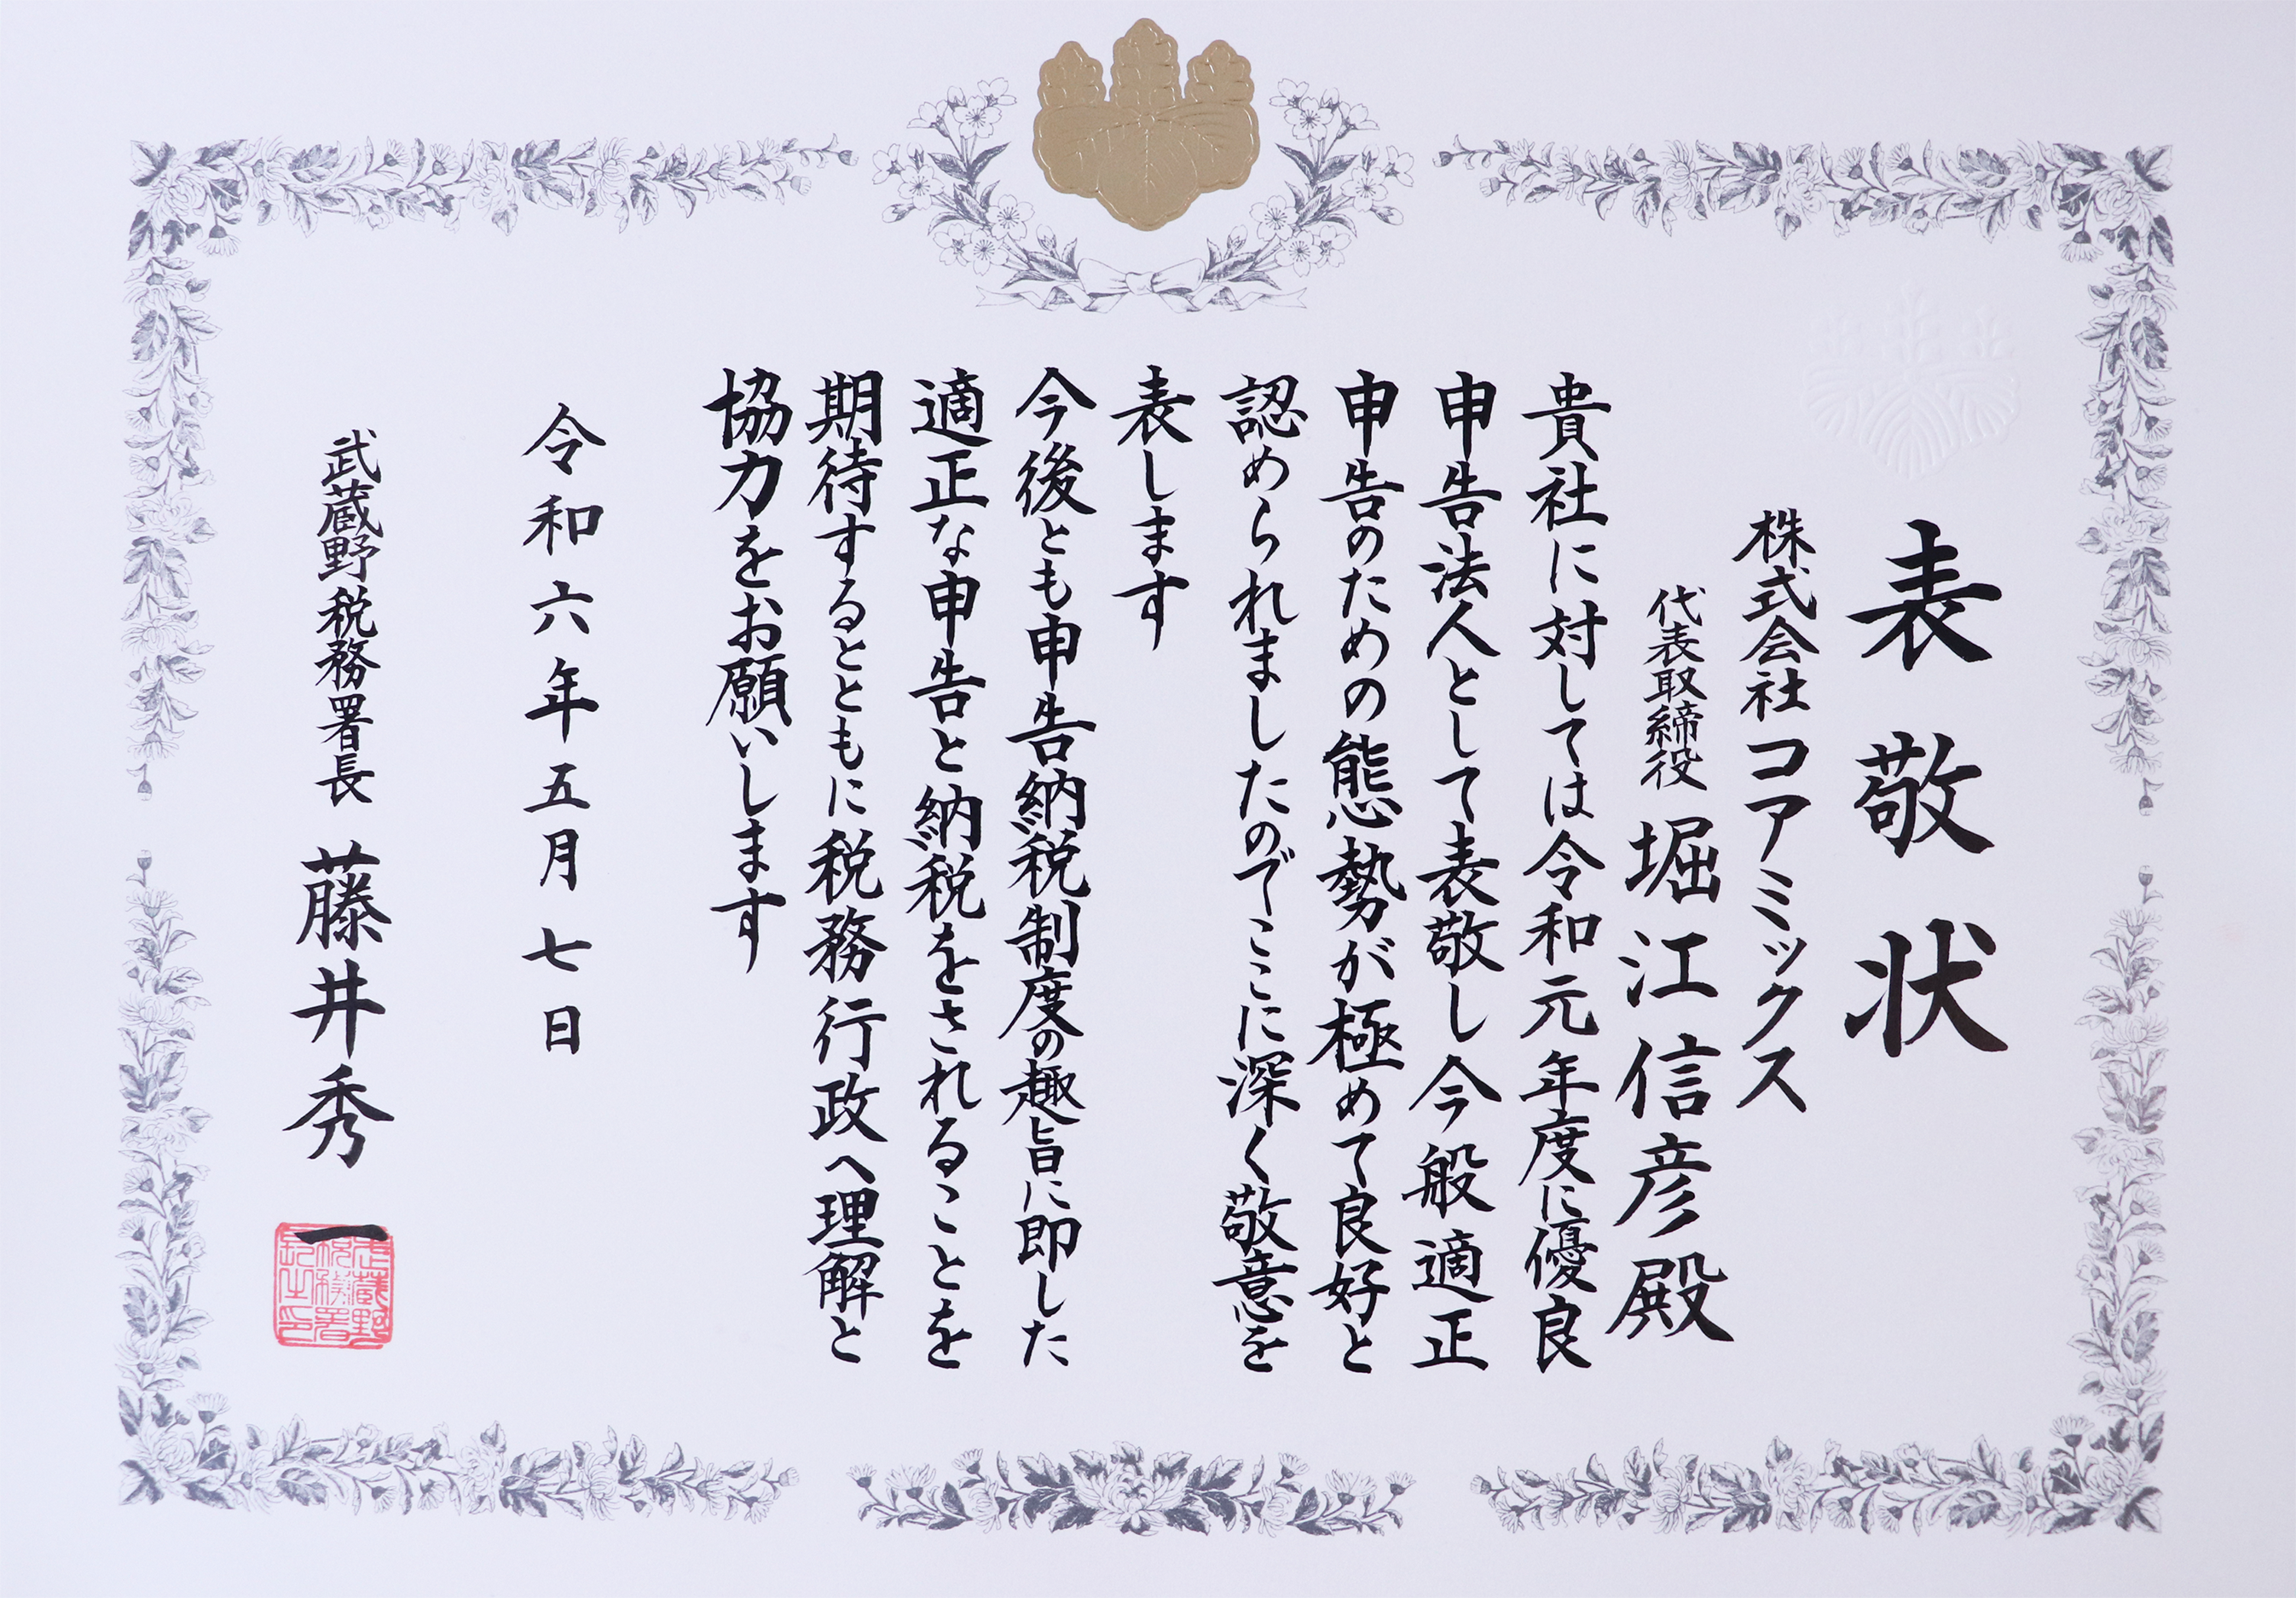 表敬状
株式会社コアミックス
代表取締役 堀江信彦殿
貴社に対しては令和元年度に優良
申告法人として表敬し今般適正
申告のための態勢が極めて良好と
認められましたのでここに深く敬意を
表します
今後とも申告納税制度の趣旨に即した
適正な申告と納税をされることを
期待するとともに税務行政へ理解と
協力をお願いします
令和六年五月七日
武蔵野税務署長 藤井秀一
武蔵野
税務署
長之印